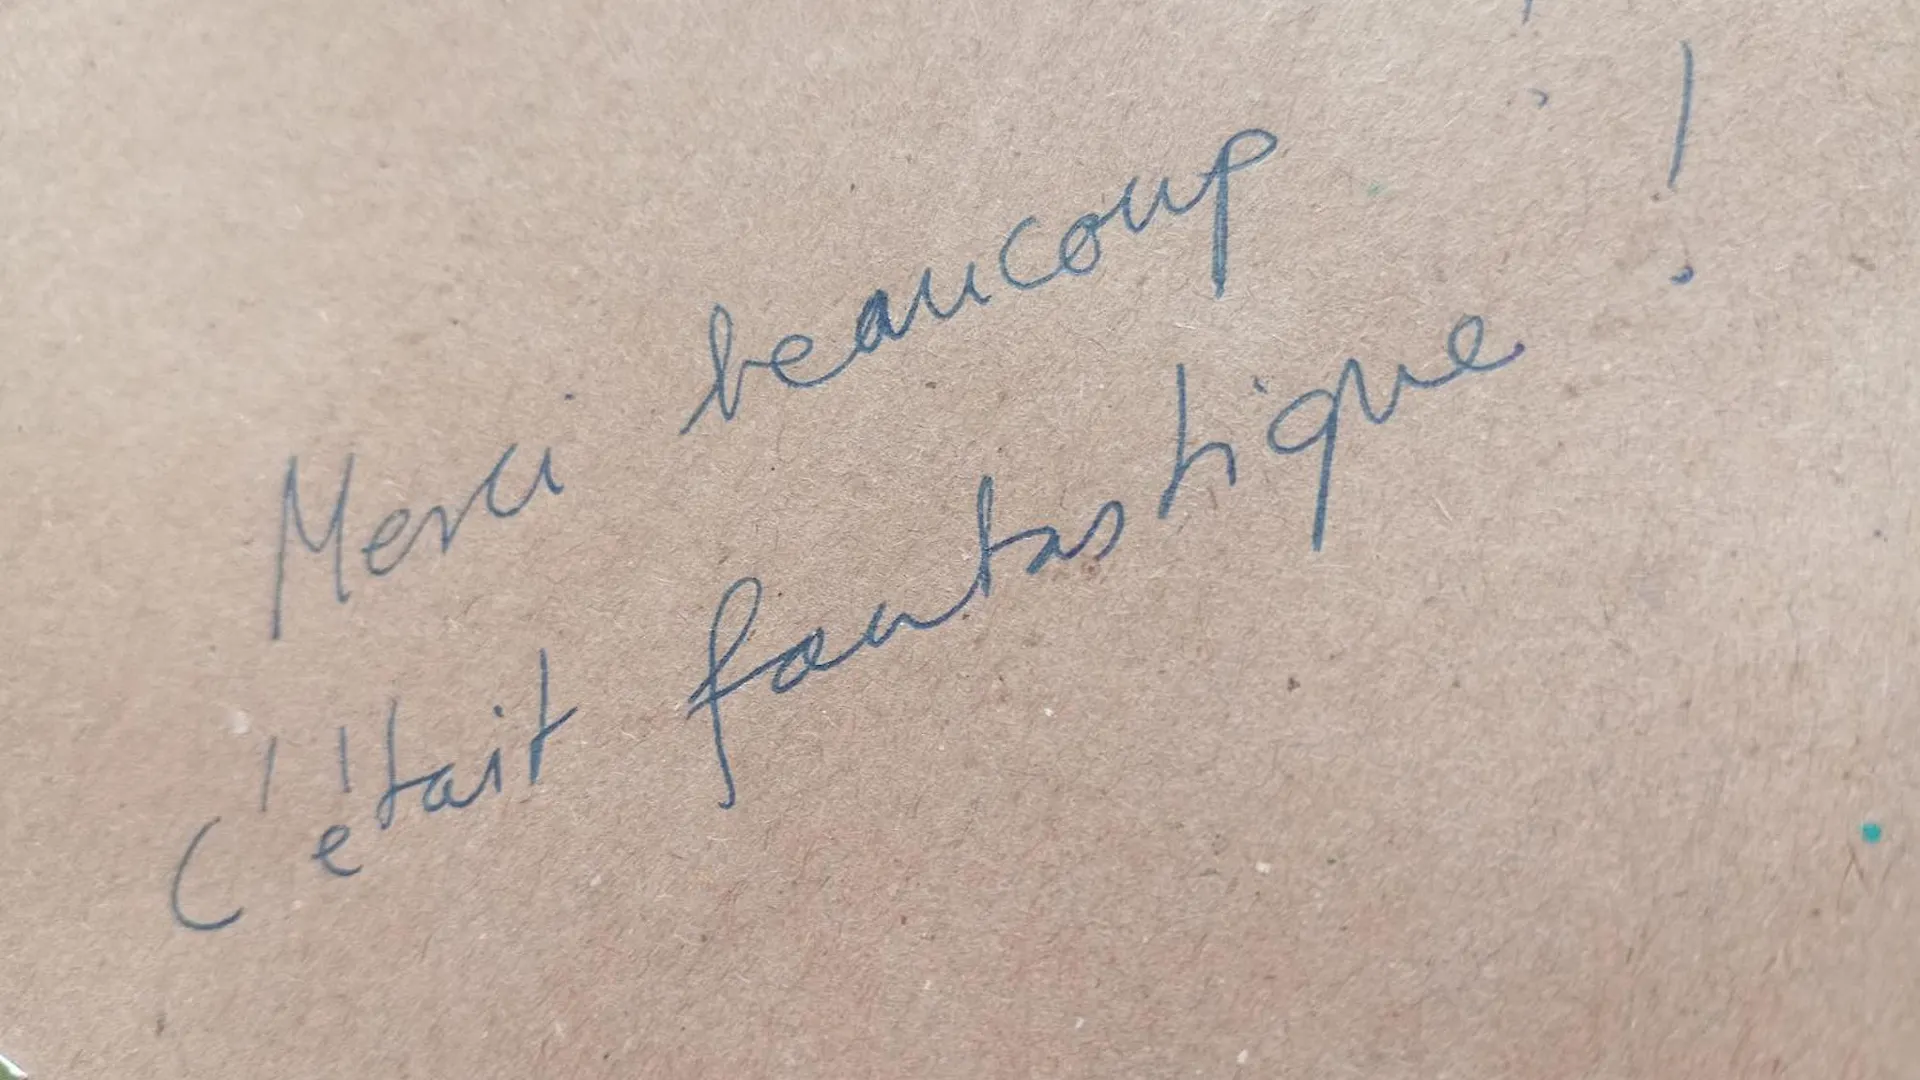 Merci beaucoup
C'était fantastique !